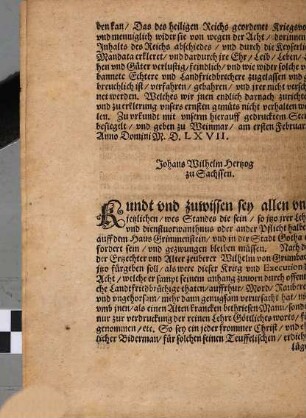 ben kan / Das des heiligen Reichs geordenet Kriegsvo
und menniglich wider sie von wegen der Acht / vorinnen
Inhalts des Reichs abschiedes / und durch die Keyserli
Mandata erkleret / und dardurch ire Ehr / Leib / Leben /
ben und Güter verlustig / feindlich / und wie wider solche v
bannete Echtere und Landfriedbrechere zugelassen und
breuchlich ist / verfahren / gebahren / und irer nicht versch
net werden. Welches wir jnen endlich darnach zurichte
und zu erklerung unsers ernsten gemüts nicht verhalten w
len. Zu urkundt mit unserm hierauff gedruckten Sec
besiegelt / und geben zu Weinmar / am ersten Februar
Anno Domini M. D. LXVII.
Johans Wilhelm Hertzog
zu Sachssen.
Kundt und zuwissen sey allen un
jeglichen / wes Standes die sein / so jtzo irer Leh
und dienstuorwanthnus oder ander Pflicht halbe
auff dem Haus Grimmenstein / und in der Stadt Gotha e
fordert sein / und gezwungen bleiben müssen. Nach de
der Ertzechter und Alter zeuberer Wilhelm von Grumbac
jtzo fürgeben sol / als were dieser Krieg und Execution d
Acht / welcher er sampt seinem anhang umb auch offent
che Landfriedbrüchige thaten / auffrhur / Mord / Rauberey
und ungehorsam / mehr dann genugsam verursacht hat /
umb jnen / als einen Alten krancken bethriesen Man / sonde
nur zur verdruckung der reinen Lehre Göttliches worts / fü
genommen / etc. So sey ein jeder frommer Christ / und eh
licher Biderman / für solchen seinen Teuffelischen / erdich
lüg